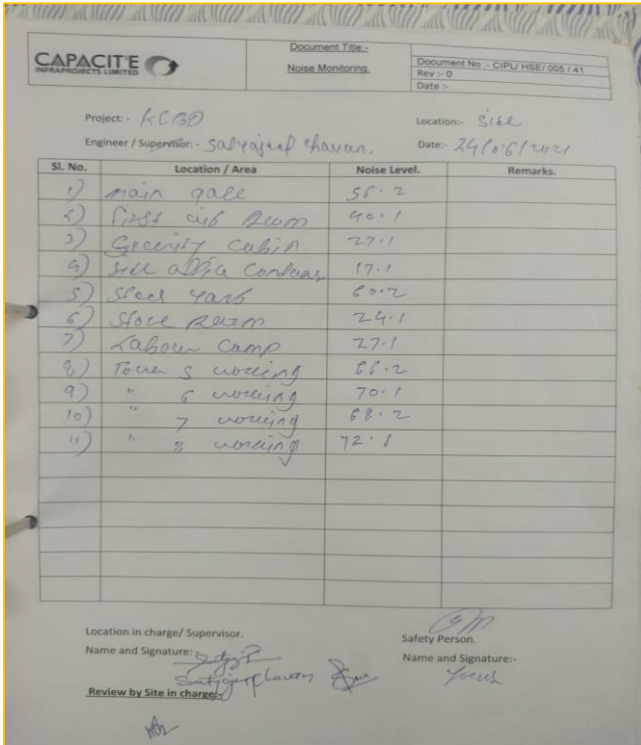 CAPACIT'E
INFRAPROJECTS LIMITED
Document Title:-
Noise Monitoring.
Document No :- CIPL/ HSE/ 005 / 41
Rev :- 0
Date :-
Project: - KCBD
Location:- Site
Engineer / Supervisor: - Satyajeet Chavan.
Date:- 24/06/2021
Sl. No. Location / Area Noise Level. Remarks.
1) main gate 56.2
2) First aid Room 40.1
3) Security Cabin 27.1
4) office 17.1
5) Steel yard 60.2
6) Store Room 24.1
7) Labour Camp 27.1
8) Tower 5 working 66.2
9) " 6 working 70.1
10) " 7 working 68.2
11) " 8 working 72.1
Location in charge/ Supervisor.
Safety Person.
Name and Signature:
Name and Signature:-
Satyajeet Chavan
Review by Site in charge:-